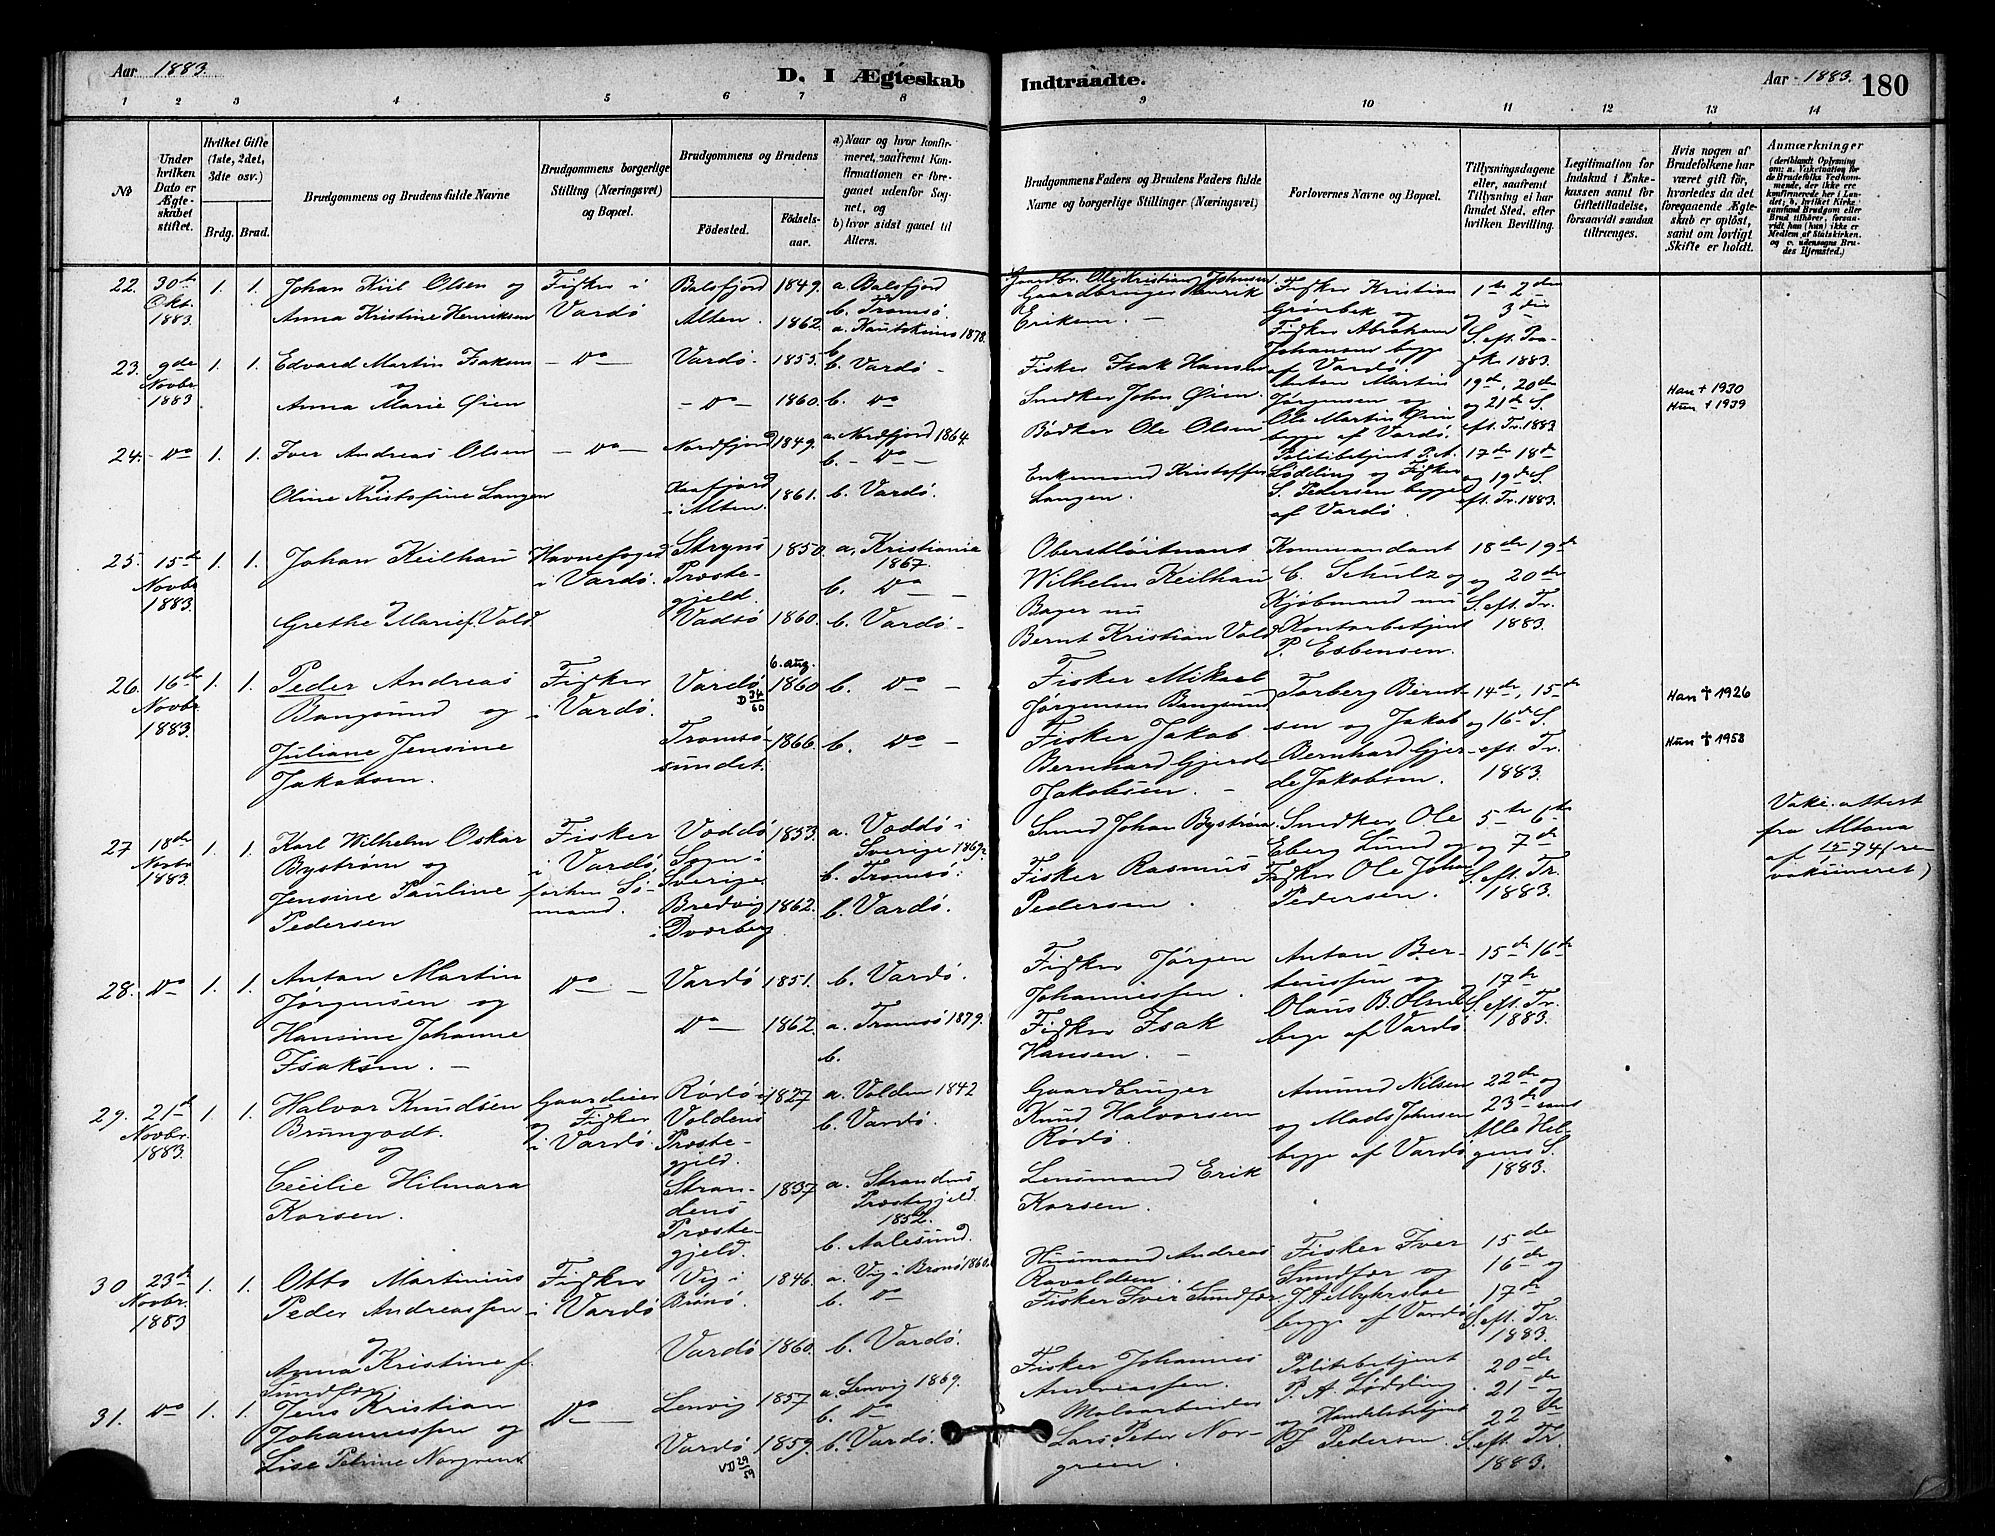 Aar 1883.
D. I Ægteskab
Indtraadte.
Aar 1883.
180
1 2 3 4 5 6 7 8 9 10 11 12 13 14
No
Under hvilken Dato er Ægteskabet stiftet.
Hvilket Gifte (1ste, 2det, 3die osv.)
Brdg. Brud.
Brudgommens og Brudens fulde Navne
Brudgommens borgerlige Stilling (Næringsvei) og Bopæl.
Brudgommens og Brudens
Fødested.
Fødselsaar.
a) Naar og hvor konfirmeret, saafremt Konfirmationen er foregaaet udenfor Sognet, og
b) hvor sidst gaaet til Alters.
Brudgommens Faders og Brudens Faders fulde Navne og borgerlige Stillinger (Næringsvei)
Forlovernes Navne og Bopæl.
Tillysningsdagene eller, saafremt Tillysning ei har fundet Sted, efter hvilken Bevilling.
Legitimation for Indskud i Enkekassen samt for Giftetilladelse, forsaavidt saadan tiltrænges.
Hvis nogen af Brudefolkene har været gift før, hvorledes da det foregaaende Ægteskab er opløst, samt om lovligt Skifte er holdt.
Anmærkninger
22. 30te Okt. 1883. 1. 1. Johan Kiil Olsen og
Anna Kristine Henriksen
Fisker i Vardø
Balsfjord 1849. a. Balsfjord b. Tromsø
Alten. 1862. a. Kautokeino 1878. b.
Gaardbr. Ole Kristian Johnsen
Gaardbruger Henrik Eriksen. –
Fisker Kristian Grønbek og Fisker Abraham Johansen begge af Vardø.
1ste 2den og 3die S. eft. 1883.
23. 9de Novbr 1883 1. 1. Edvard Martin Isaksen og
Anna Marie Øien
– Do –
Vardø – 1855. b. Vardø –
– Do – 1860. b. Do
Fisker Isak Hansen
Snedker John Øien.
Anton Martin Jørgensen og Ole Martin Øien begge af Vardø.
19de, 20de og 21de S. eft. Tr. 1883
Han + 1930
Hun + 1939
24. – Do 1. 1. Iver Andreas Olsen
Oline Kristofine Langen
– Do –
Nordfjord 1849. a. Nordfjord 1864. b. – Do –
Kaafjord i Alten. 1861. b. Vardø.
Bødker Ole Olsen
Enkemand Kristoffer Langen.
Politibetjent P. A. Lødding og Fisker S. Pedersen begge af Vardø.
17de 18de og 19de S. eft. Tr. 1883.
25. 15de Novbr 1883. 1. 1. Johan Keilhau
Grethe Marie f. Vold
Havnefoged i Vardø.
Stryns Præstegjeld. 1850. a. Kristiania 1867. b. Do –
Vadsø 1860. b. Vardø –
Oberstløitnant Wilhelm Keilhau
Bager nu Bernt Kristian Vold
Kommandant C. Schulz og Kjøbmand nu Kontorbetjent P. Esbensen.
18de 19de og 20de S. eft. Tr. 1883.
26. 16de Novbr. 1883. 1. 1. Peder Andreas Bangsund og
Juliane Jensine Jakobsen.
Fisker i Vardø.
6. aug.
Vardø 1860 b. Do –
D 34/60
Tromsøsundet. 1866. b. Do –
Fisker Mikael Jørgensen Bangsund
Fisker Jakob Bernhard Gjerde Jakobsen. –
Torberg Berntsen og Jakob Bernhard Gjerde Jakobsen.
14de, 15de og 16de S. eft. Tr. 1883.
Han + 1926
Hun + 1958
27 18de Novbr 1883. 1. 1. Karl Wilhelm Oskar Bystrøm og
Jensine Pauline Pedersen
Fisker i Vardø, forhen Sømand.
Voddø Sogn i Sverige 1853. a. Voddø i Sverige 1869. b. Tromsø.
Bredvig i Dverberg 1862. b. Vardø.
Smed Johan Bystrøm.
Fisker Rasmus Pedersen.
Snedker Ole Eberg Lund og Fisker Ole Johan Pedersen.
5te 6te og 7de S. eft. Tr. 1883.
Vakc. attest fra Altona af 1874 (revakcineret)
28. Do 1. 1. Anton Martin Jørgensen og
Hansine Johanne Isaksen. –
Do –
Vardø 1851. b. Vardø.
Do – 1862. a. Tromsø 1879. b.
Fisker Jørgen Johannessen.
Fisker Isak Hansen. –
Anton Bertiussen og Olaus B. Olsen begge af Vardø
15de 16de 17de S. eft. Tr. 1883.
29. 21de Novbr. 1883. 1. 1. Halvor Knudsen Brungodt. og
Cecilie Hilmara Korsen.
Gaardeier og Fisker i Vardø
Rødø i Voldens Præstegjeld. 1827 a. Volden 1842 b. Vardø.
Strandens Præstegjeld. 1837 a. Strandens Præstegjeld. 1852. b. Aalesund.
Gaardbruger Knud Halvorsen Rødø.
Lensmand Erik Korsen.
Amund Nilsen og Mads Johnsen begge af Vardø
22de og 23de samt Alle Helgens S. 1883.
30 23de Novbr. 1883 1. 1. Otto Martinius Peder Andreassen
Anna Kristine f. Sundfær
Fisker i Vardø
Vig i Brønø. 1846. a. Vig i Brønø 1860. b. Do
Vardø 1860. b. Vardø.
Husmand Andreas Ravaldsen.
Fisker Iver Sundfær
Fisker Iver Sundfær og begge af Vardø
15de 16de og 17de S. eft. Tr. 1883.
31. Do 1. 1. Jens Kristian Johannessen og
Lise Petrine Norgreen
Do –
Lenvig 1857 a. Lenvig 1869. b. Do
Vardø 1859. b. Vardø.
VD 29/59
Fisker Johannes Andreassen.
Malerarbeider Lars Peter Norgreen.
Politibetjent P. A. Lødding og Handelsbetjent Pedersen.
20de 21de og 22de S. eft. Tr. 1883.